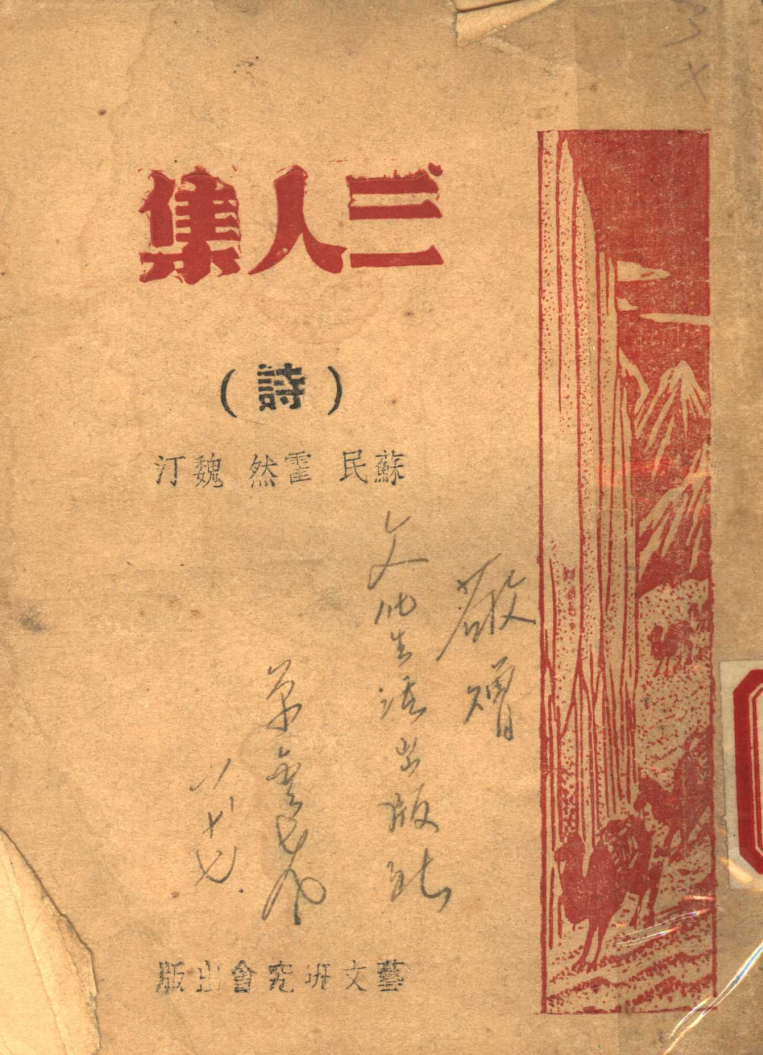 三人集
（詩）
蘇民 霍然 魏汀
敬贈
文化生活出版社
八、十七
藝文研究會出版